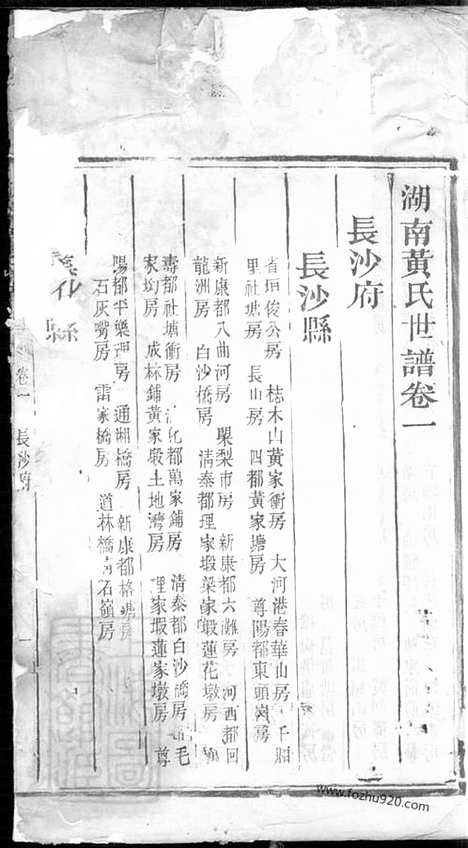 湖南黃氏世譜卷一
長沙府
長沙縣
省垣俊公房 梽木山黃家衝房 大河港春華山房 千
里社塘房 長山房 四都黃家塘房 尊陽都東頭崗房
新康都八曲河房 㮚梨市房 新康都六離房 河西都回
龍洲房 白沙橋房 清泰都理家塅梁家塅蓮花墩房
壽都社塘衝房 化都萬家鋪房 清泰都白沙橋房 毛
家均房 成林鋪黃家塅土地灣房 理家塅蓮家墩房 尊
陽都平樂 房 通湘橋房 新康都格塘房
石灰嘴房 雷家橋房 道林橋 石嶺房
縣
卷一 長沙府 一
www.fozhu920.com